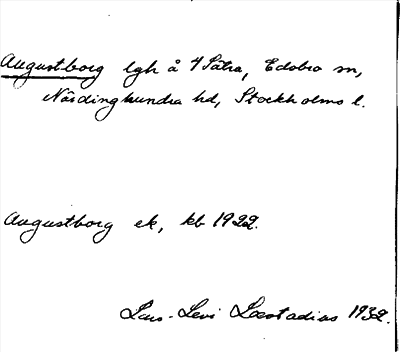 Augustborg lgh å Sätra, Edebo sn,
Närdinghundra hd, Stockholms l.
Augustborg ek, kb 1922.
Lars-Levi Læstadius 1932.